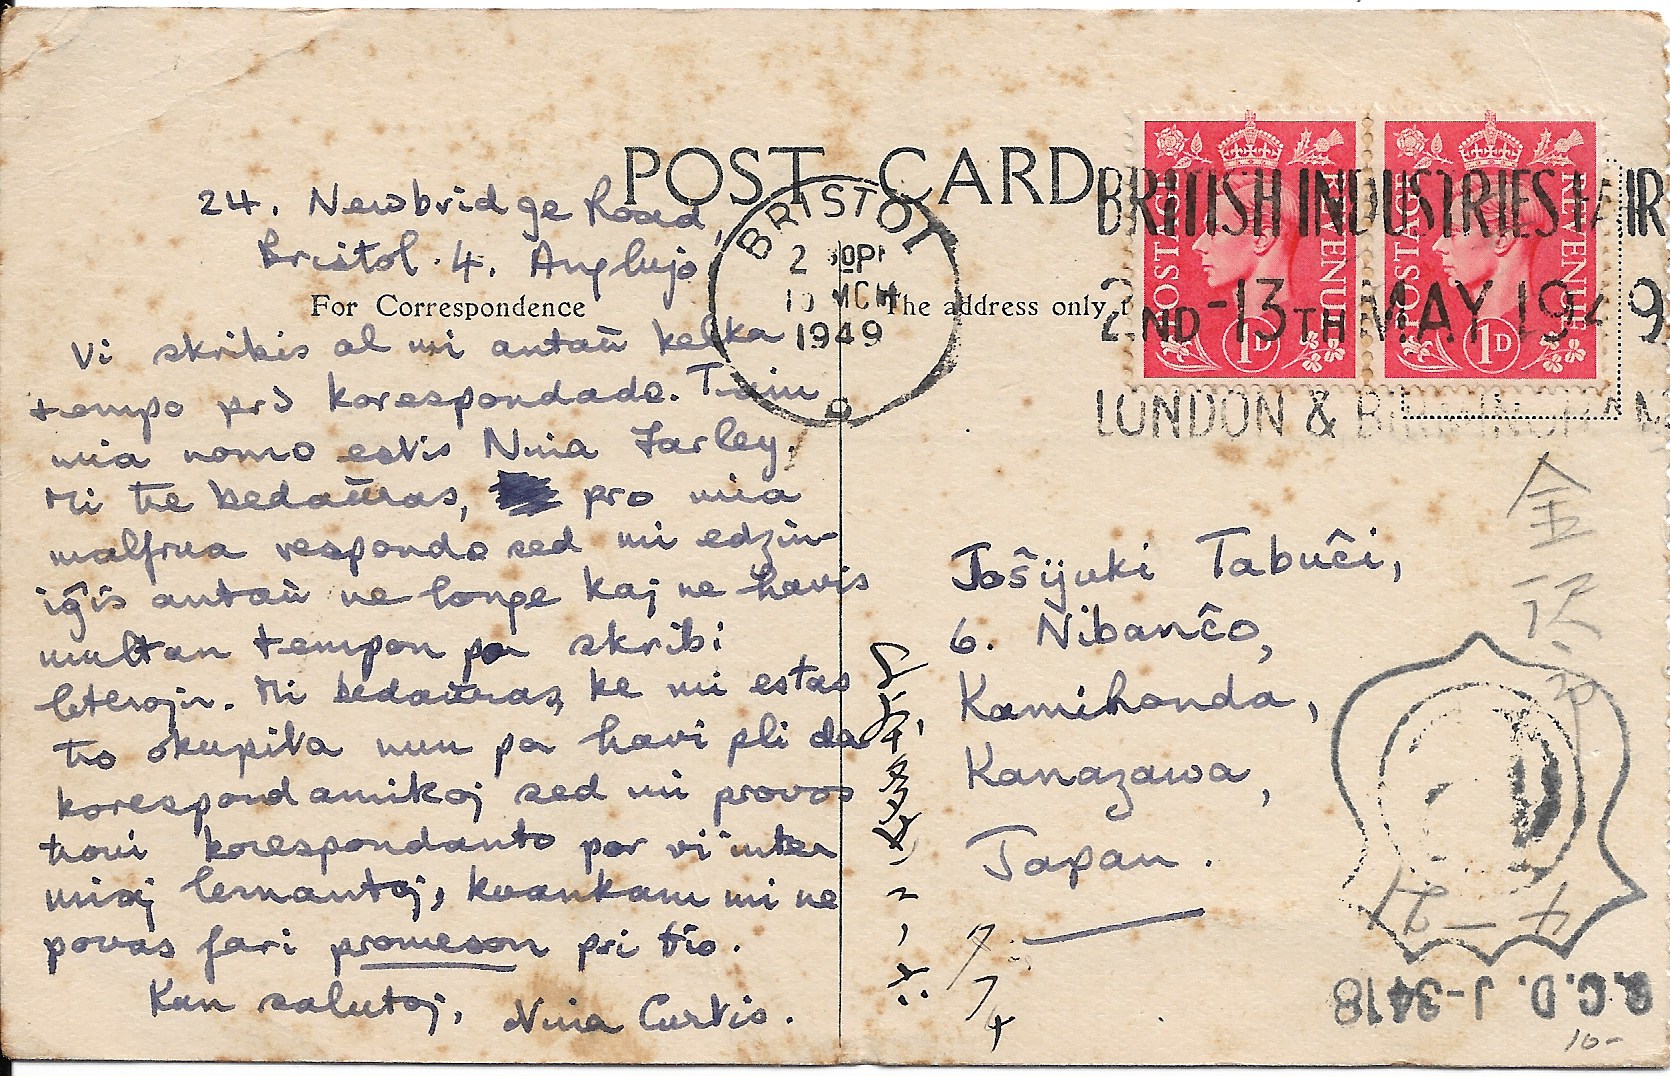 POST CARD
24. Newbridge Road,
Bristol. 4. Anglujo
For Correspondence
The address only t
Vi skribis al mi antaŭ kelka
tempo pri korespondado. Tiam
mia nomo estis Nina Farley.
Mi tre bedaŭras, pro mia
malfrua respondo sed mi edzin-
iĝis antaŭ ne longe kaj ne havis
multan tempon por skribi
leterojn. Mi bedaŭras, ke mi estas
tro okupita nun por havi pli da
korespondamikoj sed mi provos
trovi korespondanto por vi inter
miaj lernantoj, kvankam mi ne
povas fari promeson pri tio.
Kun salutoj, Nina Curtis.
BRISTOL
MCH
1949
BRITISH INDUSTRIES FAIR
2ND-13TH MAY 1949
LONDON & BIRMINGHAM
POSTAGE REVENUE
1D
POSTAGE REVENUE
1D
Joŝijuki Tabuĉi,
6. Nibanĉo,
Kamihonda,
Kanazawa,
Japan.
金沢
7/7
C.D. J-3418
10-